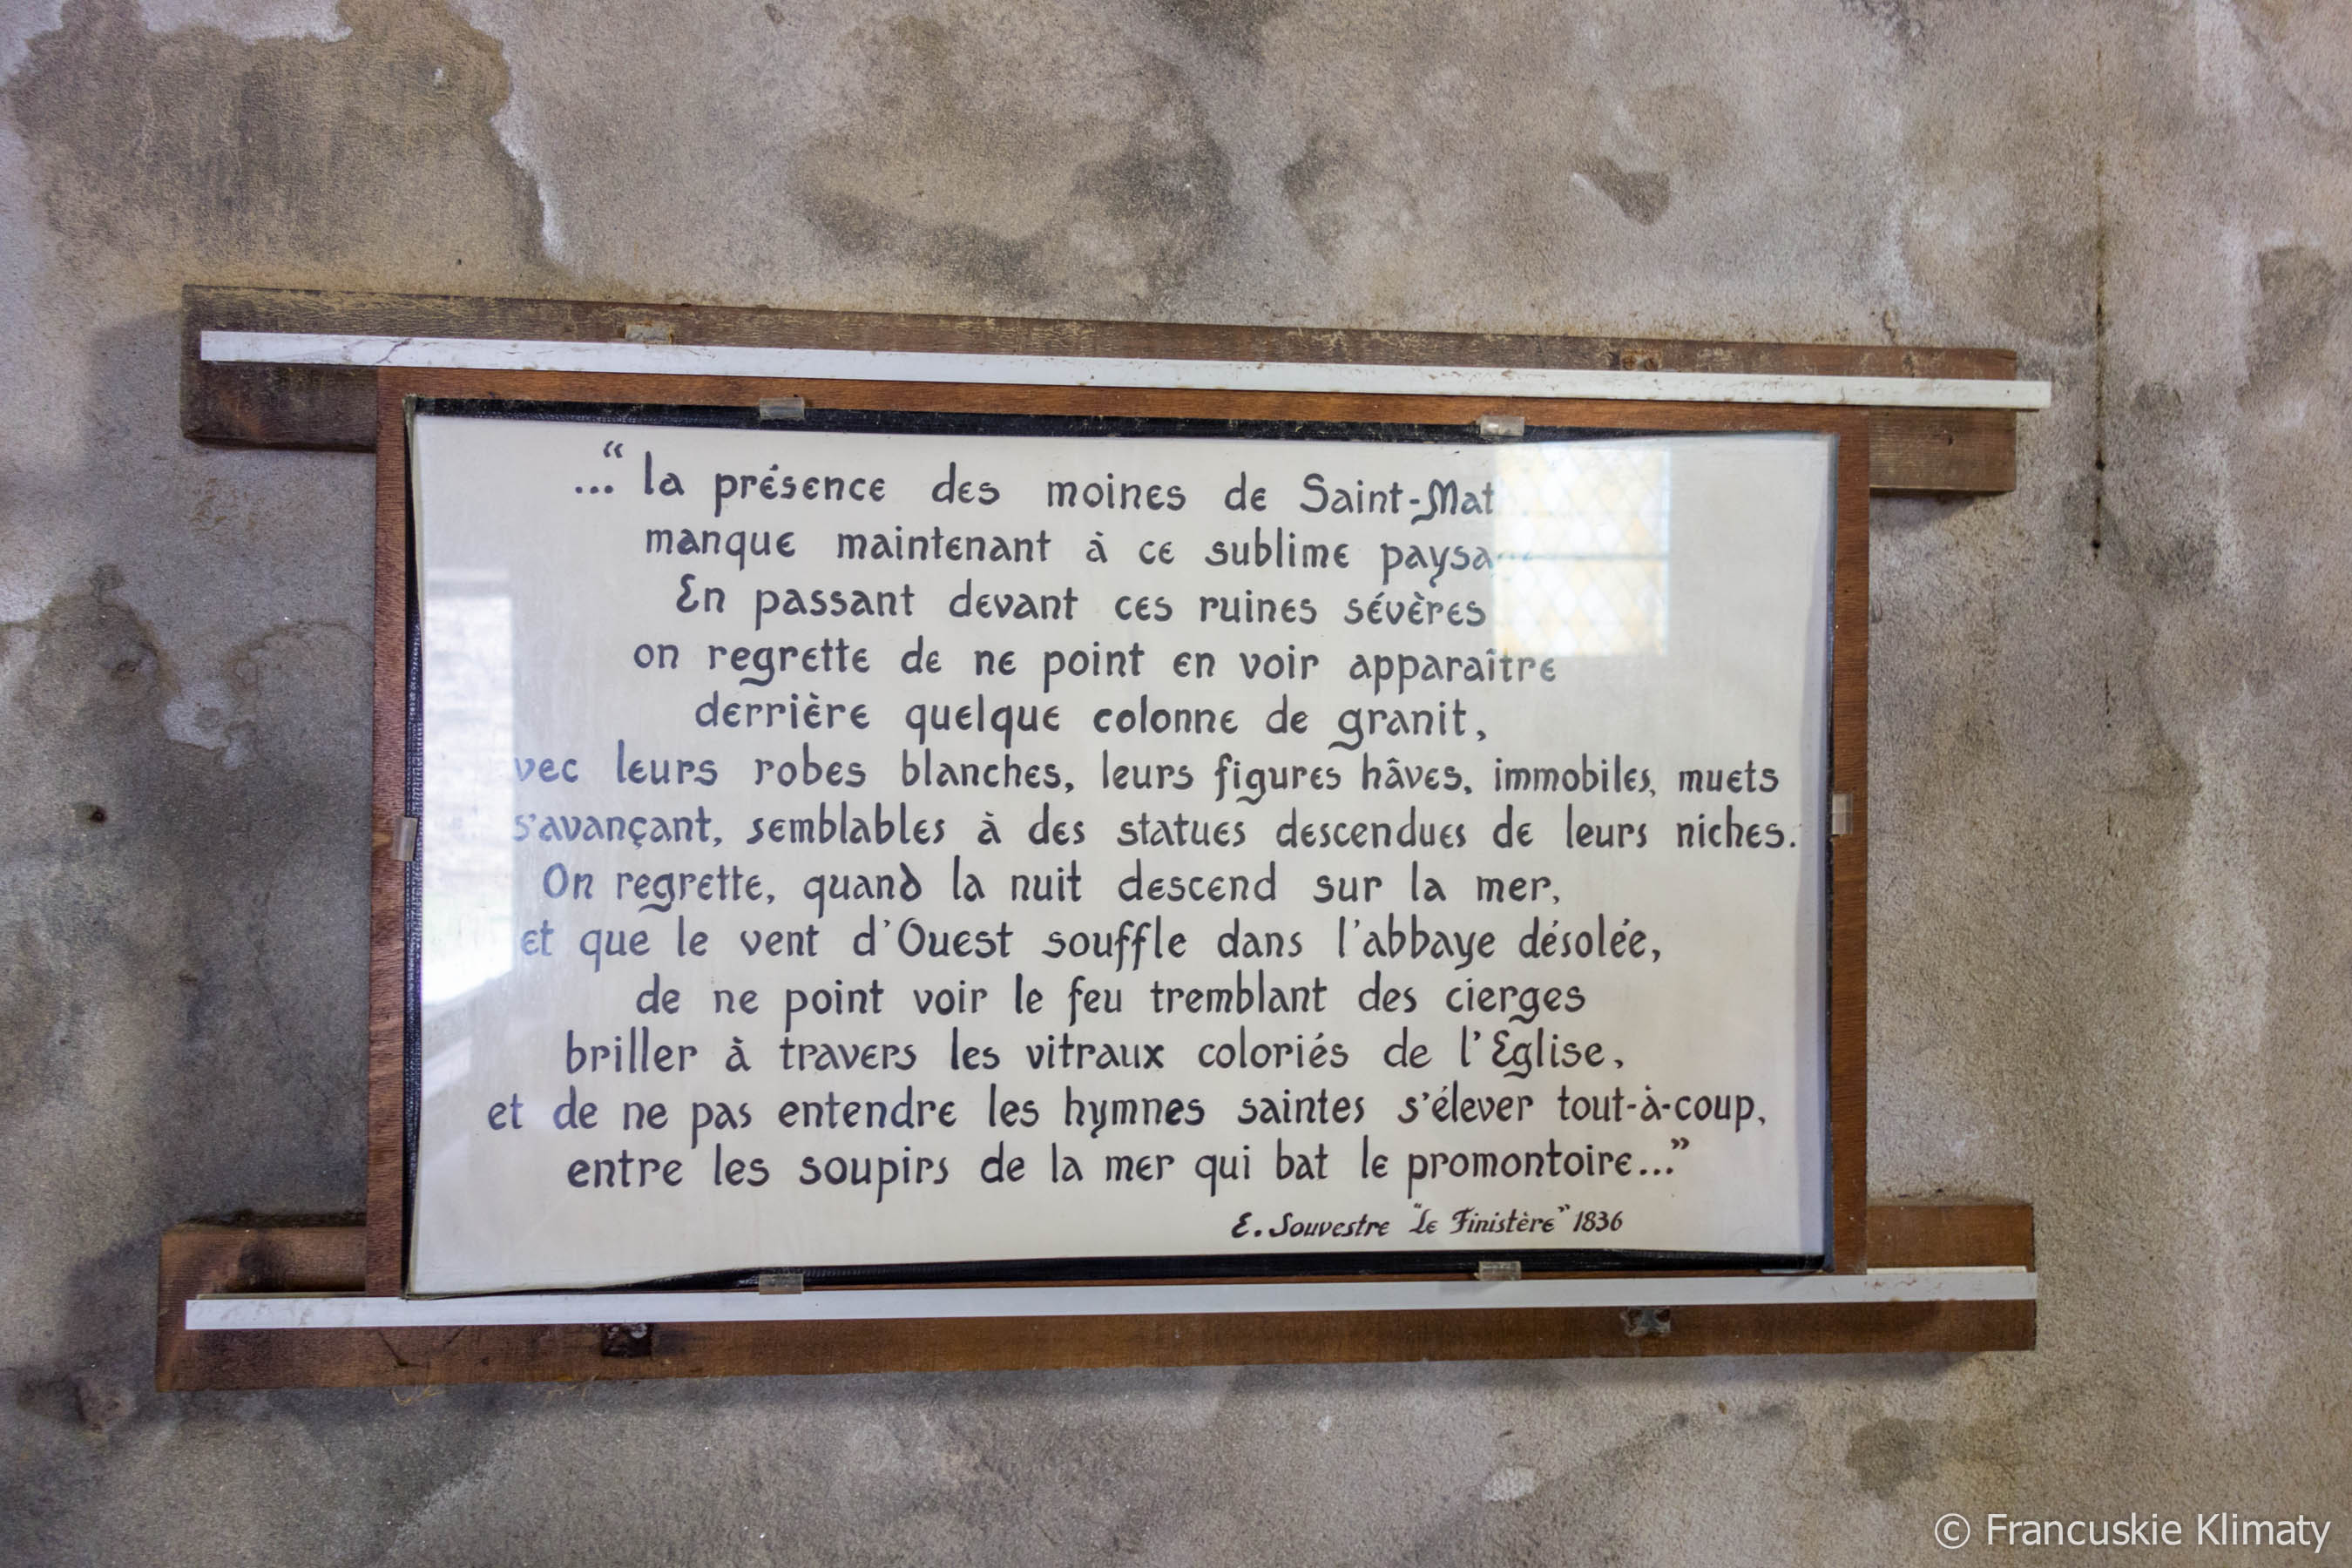 ..."la présence des moines de Saint-Mat
manque maintenant à ce sublime paysa
En passant devant ces ruines sévères
on regrette de ne point en voir apparaître
derrière quelque colonne de granit,
vec leurs robes blanches, leurs figures hâves, immobiles, muets
s'avançant, semblables à des statues descendues de leurs niches.
On regrette, quand la nuit descend sur la mer,
et que le vent d'Ouest souffle dans l'abbaye désolée,
de ne point voir le feu tremblant des cierges
briller à travers les vitraux coloriés de l'Eglise,
et de ne pas entendre les hymnes saintes s'élever tout-à-coup,
entre les soupirs de la mer qui bat le promontoire..."
E. Souvestre "Le Finistère" 1836
© Francuskie Klimaty